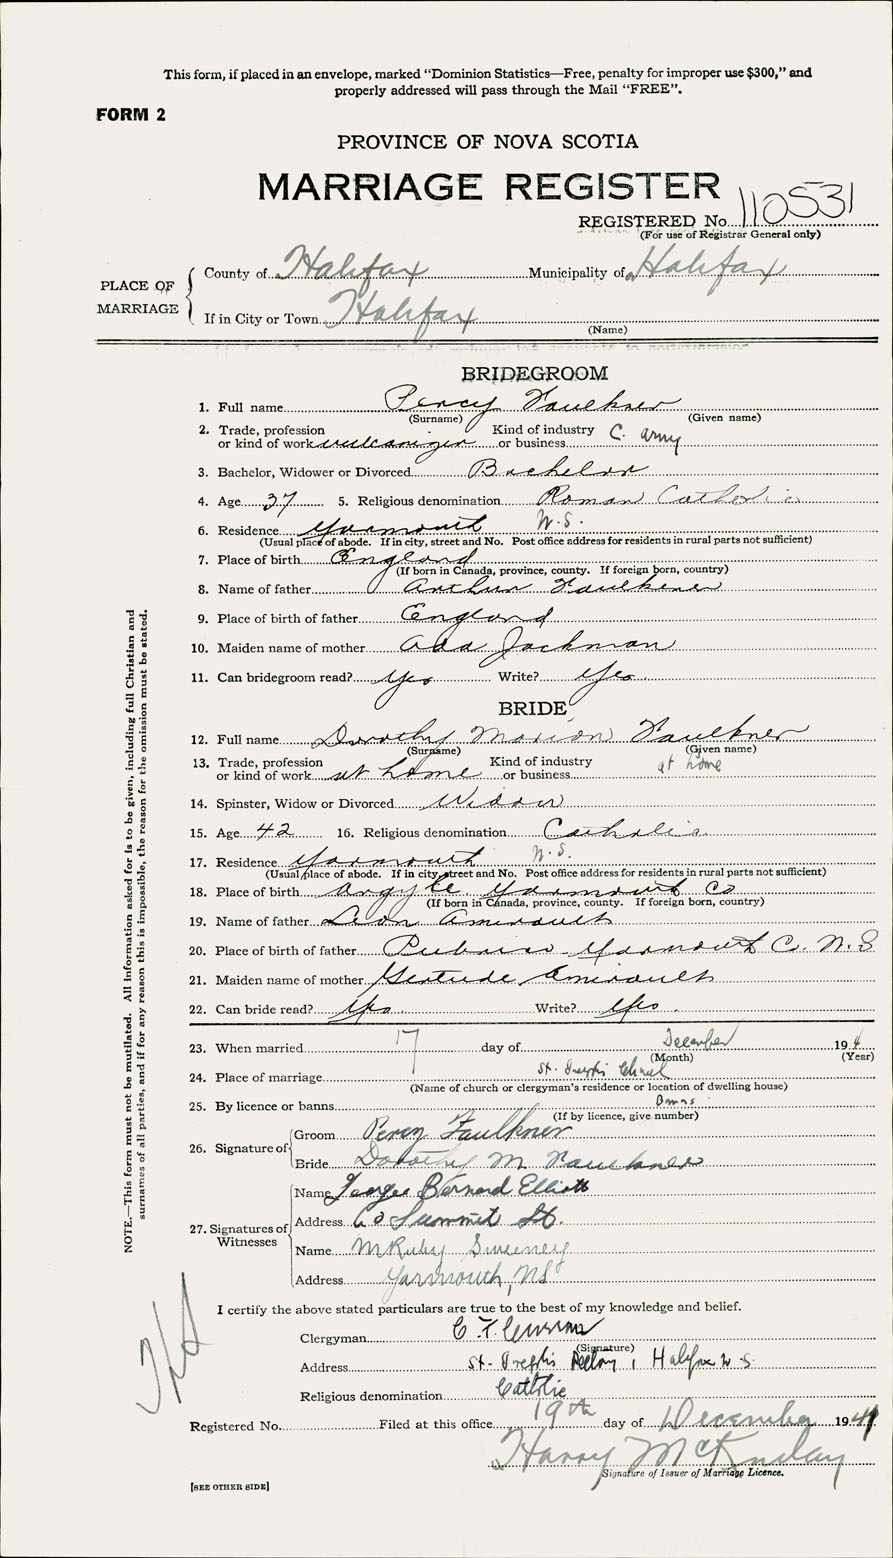 This form, if placed in an envelope, marked “Dominion Statistics—Free, penalty for improper use $300,” and
properly addressed will pass through the Mail “FREE”.
FORM 2
PROVINCE OF NOVA SCOTIA
MARRIAGE REGISTER
REGISTERED No. 110531
(For use of Registrar General only)
PLACE OF MARRIAGE
County of Halifax Municipality of Halifax
If in City or Town Halifax
(Name)
BRIDEGROOM
1. Full name Percy Faulkner
(Surname) (Given name)
2. Trade, profession Kind of industry
or kind of work vulcanizer or business C. army
3. Bachelor, Widower or Divorced Bachelor
4. Age 37 5. Religious denomination Roman Catholic
6. Residence Yarmouth N.S.
(Usual place of abode. If in city, street and No. Post office address for residents in rural parts not sufficient)
7. Place of birth England
(If born in Canada, province, county. If foreign born, country)
8. Name of father Arthur Faulkner
9. Place of birth of father England
10. Maiden name of mother Ada Jackman
11. Can bridegroom read? Yes Write? Yes
BRIDE
12. Full name Dorothy Marion Faulkner
(Surname) (Given name)
13. Trade, profession Kind of industry
or kind of work at home or business at home
14. Spinster, Widow or Divorced Widow
15. Age 42 16. Religious denomination Catholic
17. Residence Yarmouth N.S.
(Usual place of abode. If in city, street and No. Post office address for residents in rural parts not sufficient)
18. Place of birth Argyle Yarmouth Co
(If born in Canada, province, county. If foreign born, country)
19. Name of father Leon Amirault
20. Place of birth of father Pubnico Yarmouth Co. N.S
21. Maiden name of mother Gertrude Amirault
22. Can bride read? Yes Write? Yes
23. When married 17 day of December 194
(Month) (Year)
24. Place of marriage St. Joseph's Church
(Name of church or clergyman's residence or location of dwelling house)
25. By licence or banns Banns
(If by licence, give number)
26. Signature of Groom Percy Faulkner
Bride Dorothy M Faulkner
27. Signatures of Witnesses
Name George Bernard Elliott
Address 60 Summit St.
Name M Ruby Sweeney
Address Yarmouth, NS
I certify the above stated particulars are true to the best of my knowledge and belief.
Clergyman C. F.
(Signature)
Address St. Joseph's Halifax N.S.
Religious denomination Catholic
Registered No. Filed at this office 19th day of December 1941
Harry McKinlay
Signature of Issuer of Marriage Licence.
[SEE OTHER SIDE]
NOTE.—This form must not be mutilated. All information asked for is to be given, including full Christian and
surnames of all parties, and if for any reason this is impossible, the reason for the omission must be stated.